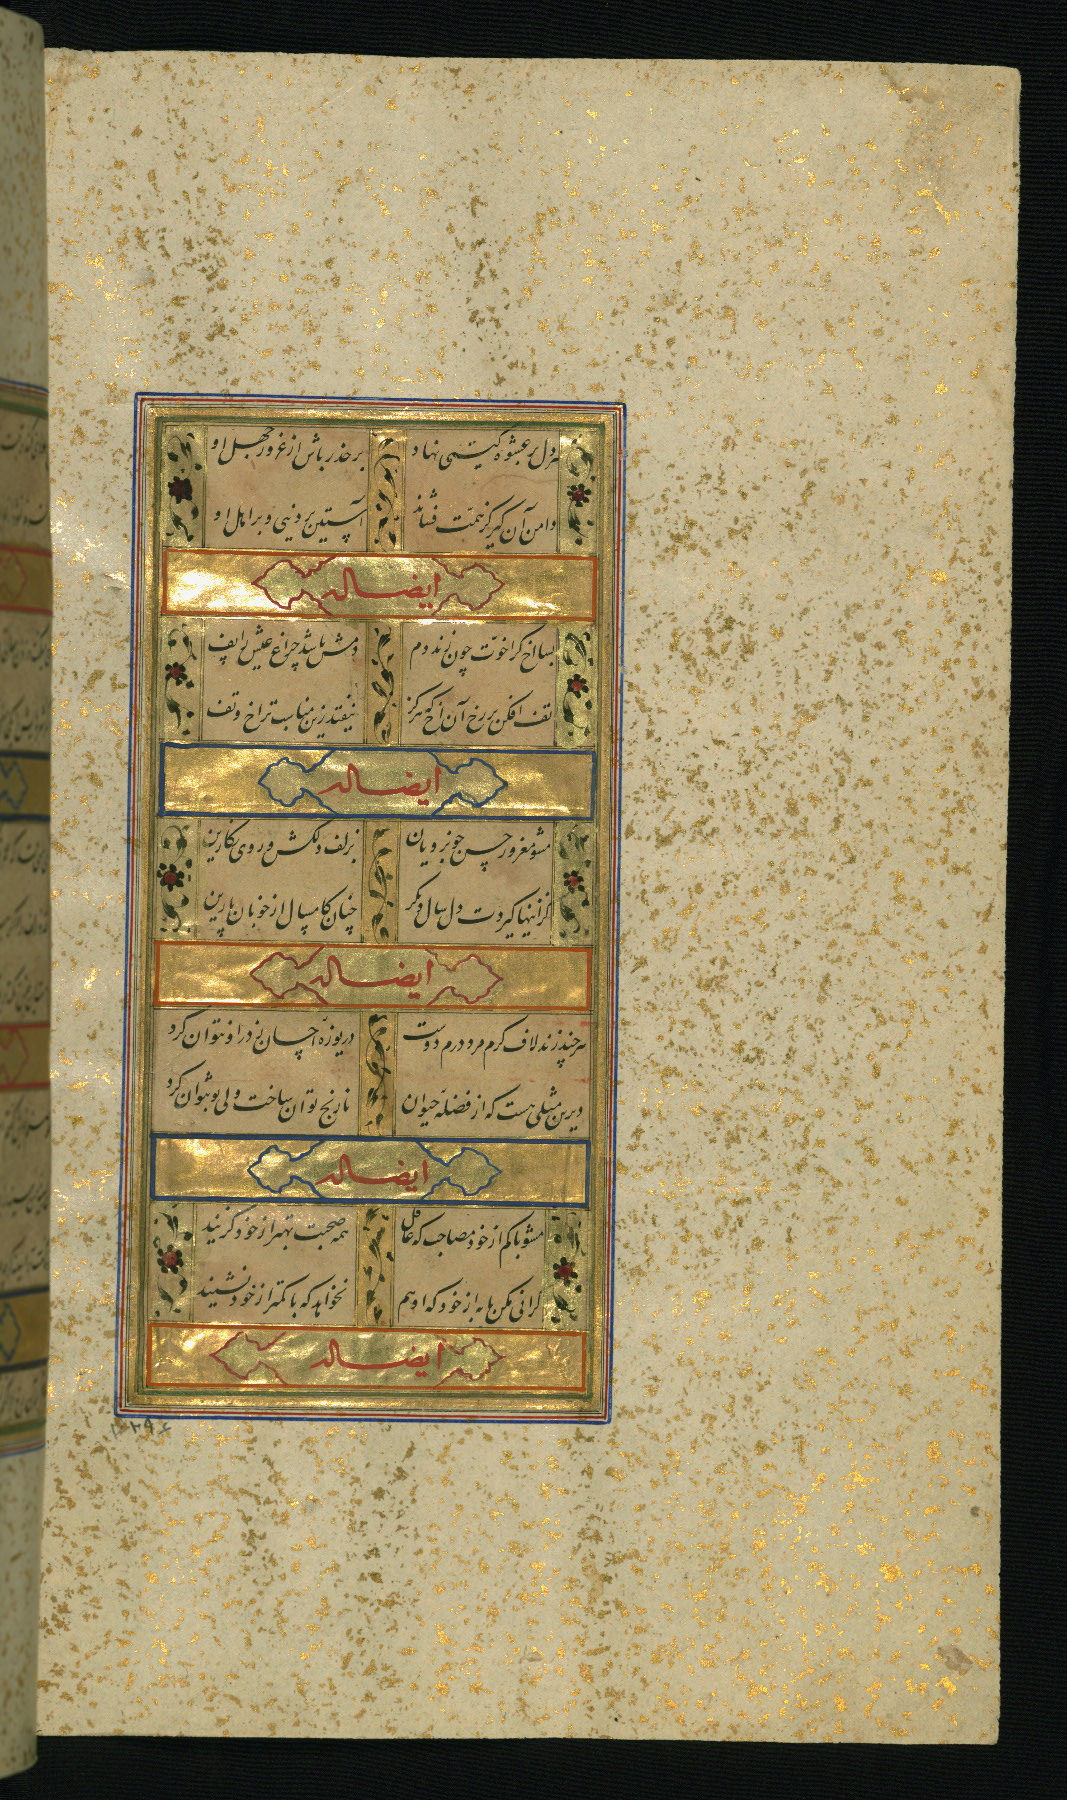 هر دل بر عشوه گیتی نهاد بر حذر باش از غرور جهل او
دامن آن گیر کز همت فشاند آستین بر دنیی و بر اهل او
ایضا له
بسا اخ کز اخوت چون زند دم دمش باشد چراغ عیش را پف
تف افکن بر رخ آن اخ که هرگز نیفتد زین مناسب‌تر اخ و تف
ایضا له
مشو مغرور حسن خوبرویان بزلف دلکش و روی نگارین
کز اینها گیردت دل سال دیگر چنان کامسال از خوبان پارین
ایضا له
هر چند زند لاف کرم مرد درم دوست دریوزه احسان ز در او نتوان کرد
دیرین مثلی هست که از فضله حیوان نارنج توان ساخت ولی بو نتوان کرد
ایضا له
مشو با کم از خود مصاحب که عاقل همه صحبت بهتر از خود گزیند
گرانی مکن با به از خود که او هم نخواهد که با کمتر از خود نشیند
ایضا له